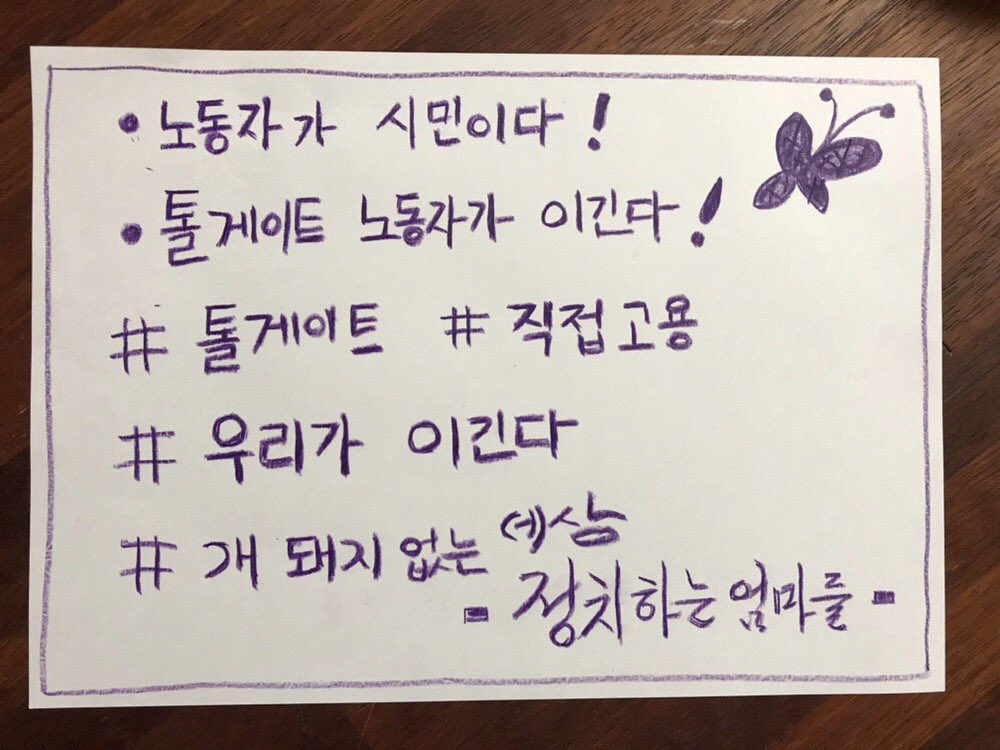 • 노동자가 시민이다!
• 톨게이트 노동자가 이긴다!
# 톨게이트 # 직접고용
# 우리가 이긴다
# 개 돼지 없는 세상
- 정치하는 엄마들 -